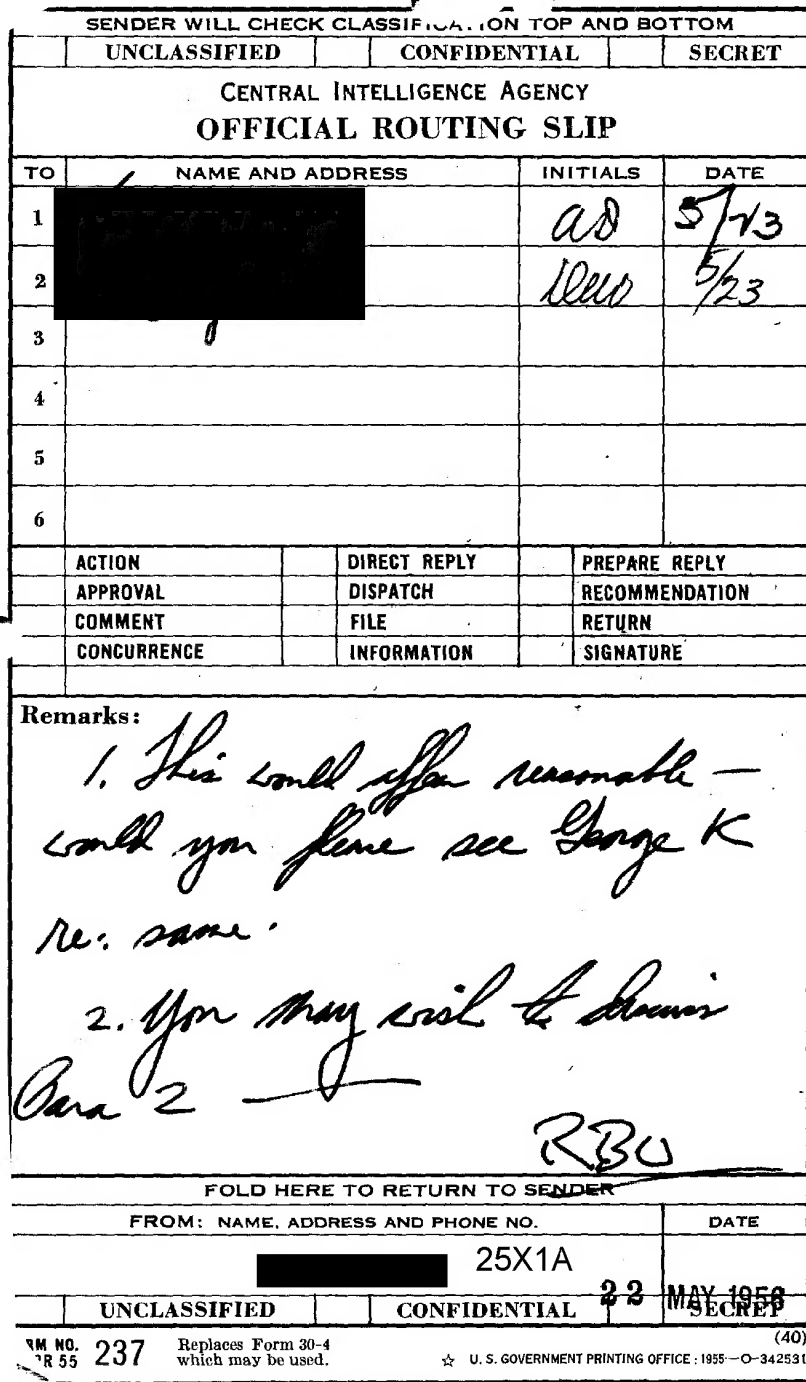 SENDER WILL CHECK CLASSIFICATION TOP AND BOTTOM
UNCLASSIFIED CONFIDENTIAL SECRET
CENTRAL INTELLIGENCE AGENCY
OFFICIAL ROUTING SLIP
TO NAME AND ADDRESS INITIALS DATE
1 5/23
2 5/23
3
4
5
6
ACTION DIRECT REPLY PREPARE REPLY
APPROVAL DISPATCH RECOMMENDATION
COMMENT FILE RETURN
CONCURRENCE INFORMATION SIGNATURE
Remarks:
1. This would reasonable —
would you please see George K
re: same.
2. You may wish to discuss
Para 2 —
RBO
FOLD HERE TO RETURN TO SENDER
FROM: NAME, ADDRESS AND PHONE NO. DATE
25X1A
22 MAY 1956
UNCLASSIFIED CONFIDENTIAL SECRET
RM NO. 237 Replaces Form 30-4 (40)
PR 55 which may be used. ☆ U. S. GOVERNMENT PRINTING OFFICE : 1955—O-342531